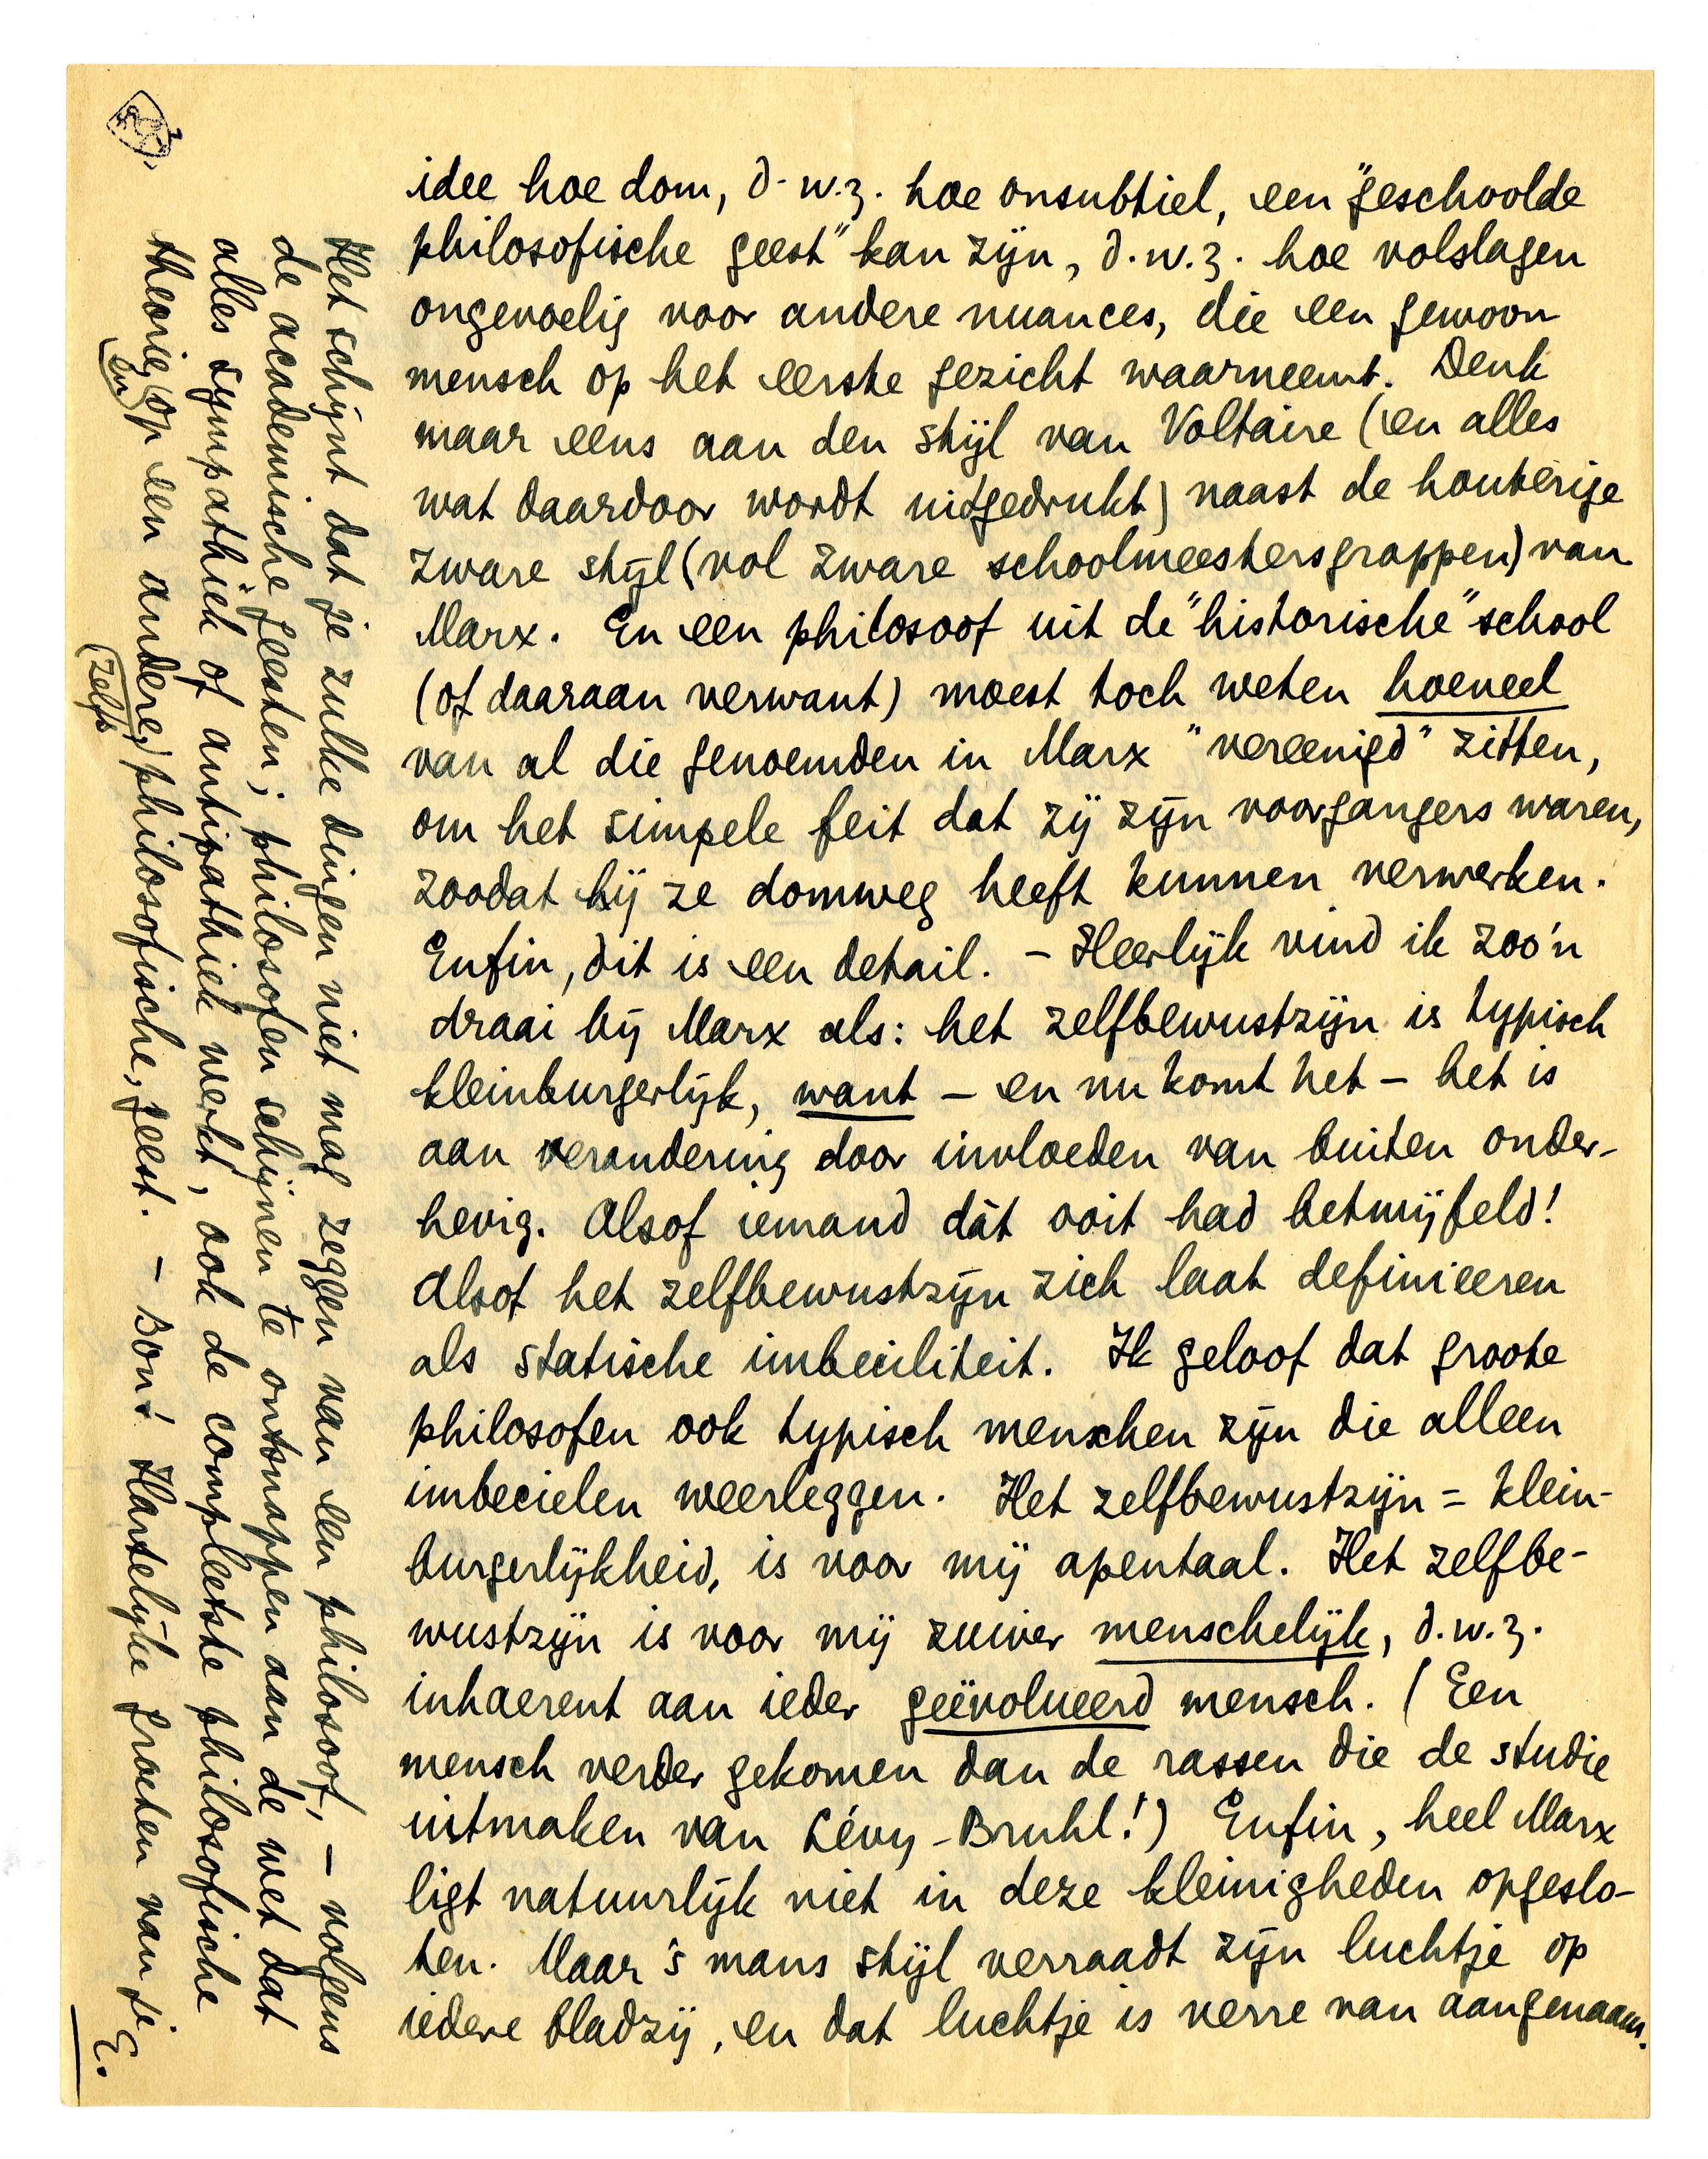 idee hoe dom, d.w.z. hoe onsubtiel, een "geschoolde
philosofische geest" kan zijn, d.w.z. hoe volslagen
ongevoelig voor andere nuances, die een gewoon
mensch op het eerste gezicht waarneemt. Denk
maar eens aan den stijl van Voltaire (en alles
wat daardoor wordt uitgedrukt) naast de houterige
zware stijl (vol zware schoolmeestersgrappen) van
Marx. En een philosoof uit de "historische" school
(of daaraan verwant) moest toch weten hoeveel
van al die genoemden in Marx "vereenigd" zitten,
om het simpele feit dat zij zijn voorgangers waren,
zoodat hij ze domweg heeft kunnen verwerken.
Enfin, dit is een detail. – Heerlijk vind ik zoo'n
draai bij Marx als: het zelfbewustzijn is typisch
kleinburgerlijk, want – en nu komt het – het is
aan verandering door invloeden van buiten onder-
hevig. Alsof iemand dàt ooit had betwijfeld!
Alsof het zelfbewustzijn zich laat definieeren
als statische imbeciliteit. Ik geloof dat groote
philosofen ook typisch menschen zijn die alleen
imbecielen weerleggen. Het zelfbewustzijn = klein-
burgerlijkheid, is voor mij apentaal. Het zelfbe-
wustzijn is voor mij zuiver menschelijk, d.w.z.
inhaerent aan ieder geëvolueerd mensch. (Een
mensch verder gekomen dan de rassen die de studie
uitmaken van Lévy-Bruhl!) Enfin, heel Marx
ligt natuurlijk niet in deze kleinigheden opgeslo-
ten. Maar 's mans stijl verraadt zijn luchtje op
iedere bladzij, en dat luchtje is verre van aangenaam.
Het schijnt dat je zulke dingen niet mag zeggen van een philosoof, – volgens
de academische geesten; philosofen schijnen te ontsnappen aan de wet dat
alles sympathiek of antipathiek werkt, ook de compleetste philosofische
theorie (en) op een andere, (zelfs) philosofische, geest. – Bon! Hartelijke groeten van je
E.